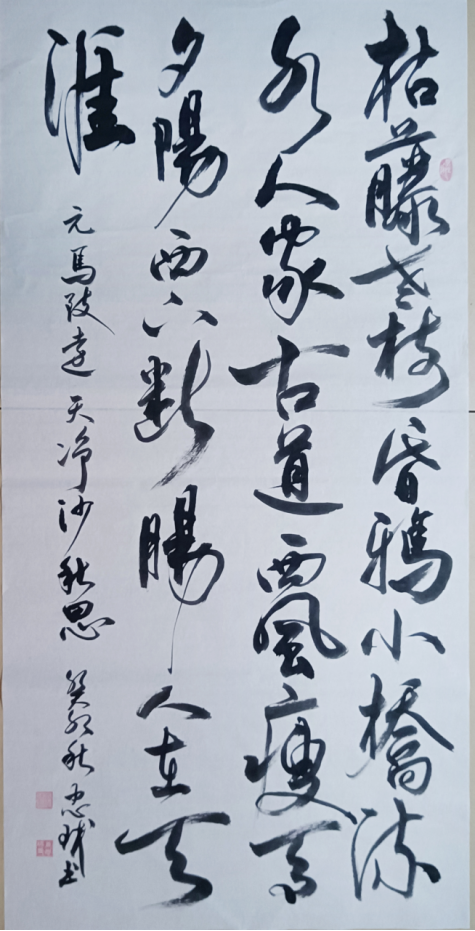 枯藤老树昏鴉小橋流
水人家古道西風瘦馬
夕陽西下斷腸人在天
涯
元馬致遠天净沙秋思 癸卯秋忠书